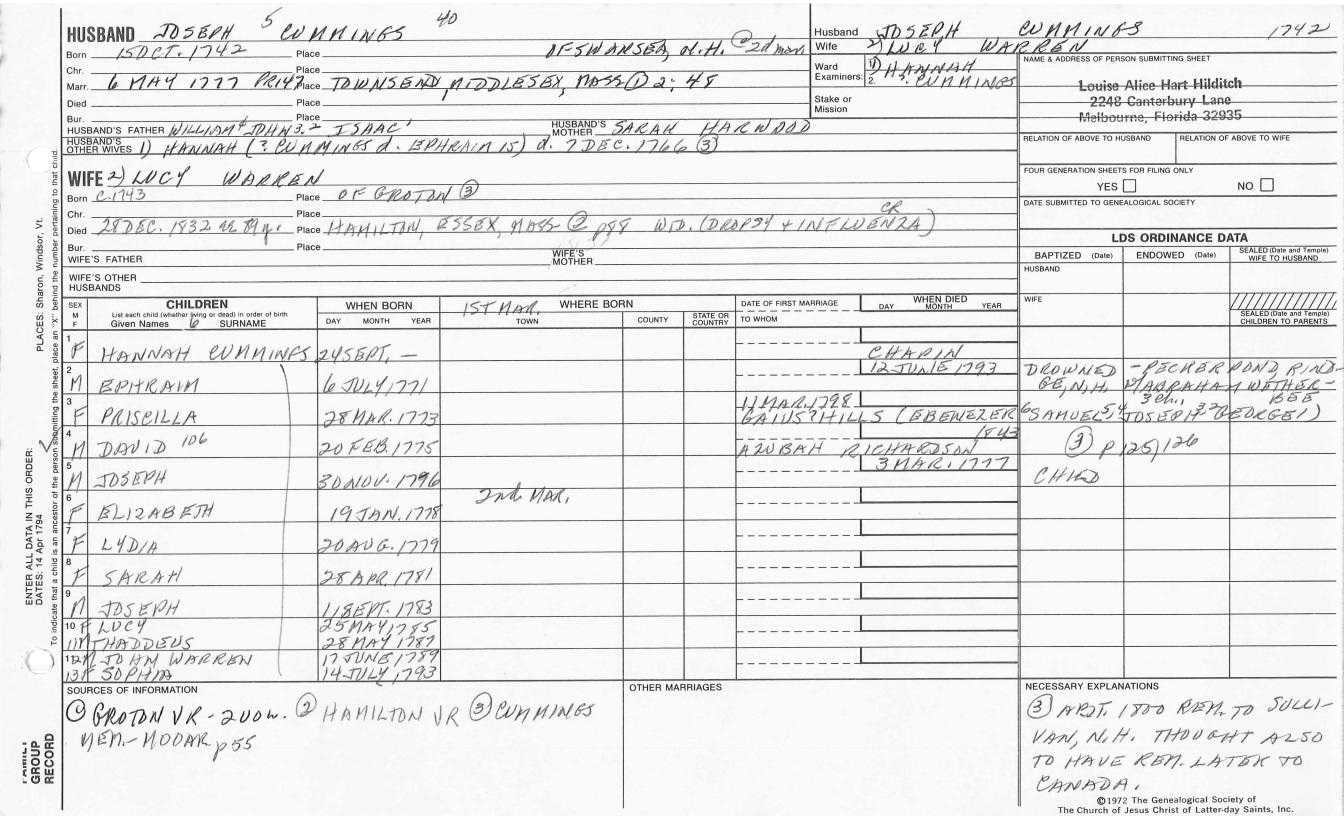 HUSBAND JOSEPH 5 CUMMINGS 40
Born 15 OCT. 1742 Place OF SWANSEA, N.H. @ 2d mar
Chr. Place
Marr. 6 MAY 1777 Place TOWNSEND, MIDDLESEX, MASS ① 2: 48
Died Place
Bur. Place
HUSBAND'S FATHER WILLIAM 4 JOHN 3-2 ISAAC 1 HUSBAND'S MOTHER SARAH HARWOOD
HUSBAND'S OTHER WIVES 1) HANNAH (? CUMMINGS d. EPHRAIM 15) d. 7 DEC. 1766 ③
WIFE 2) LUCY WARREN
Born C-1743 Place OF GROTON ③
Chr. Place
Died 28 DEC. 1832 Place HAMILTON, ESSEX, MASS ② p88 WID. (DROPSY & INFLUENZA) CR
Bur. Place
WIFE'S FATHER WIFE'S MOTHER
WIFE'S OTHER HUSBANDS
Husband JOSEPH CUMMINGS 1742
Wife 2) LUCY WARREN
Ward Examiners: 1) HANNAH
2. ? CUMMINGS
Stake or Mission
NAME & ADDRESS OF PERSON SUBMITTING SHEET
Louise Alice Hart Hilditch
2248 Canterbury Lane
Melbourne, Florida 32935
RELATION OF ABOVE TO HUSBAND RELATION OF ABOVE TO WIFE
FOUR GENERATION SHEETS FOR FILING ONLY
YES NO
DATE SUBMITTED TO GENEALOGICAL SOCIETY
LDS ORDINANCE DATA
BAPTIZED (Date) ENDOWED (Date) SEALED (Date and Temple) WIFE TO HUSBAND
HUSBAND
WIFE
SEALED (Date and Temple) CHILDREN TO PARENTS
SEX M F CHILDREN WHEN BORN 1ST MAR. WHERE BORN DATE OF FIRST MARRIAGE WHEN DIED
List each child (whether living or dead) in order of birth
Given Names 6 SURNAME DAY MONTH YEAR TOWN COUNTY STATE OR COUNTRY TO WHOM DAY MONTH YEAR
1 F HANNAH CUMMINGS 24 SEPT. — CHAPIN
12 JUNE 1793 DROWNED - PECKER POND, RIND-
2 M EPHRAIM 6 JULY 1771 GE, N.H. ABRAHAM WETHER-
11 MAR. 1798 3 ch. BEE
3 F PRISCILLA 28 MAR. 1773 GAIUS? HILLS (EBENEZER 6 SAMUEL 5,4 JOSEPH 3-2 GEORGE 1)
1843
4 M DAVID 106 20 FEB. 1775 AZUBAH RICHARDSON ③ P 125/126
3 MAR. 1777
5 M JOSEPH 30 NOV. 1796 CHILD
2nd MAR.
6 F ELIZABETH 19 JAN. 1778
7 F LYDIA 20 AUG. 1779
8 F SARAH 28 APR. 1781
9 M JOSEPH 11 SEPT. 1783
10 F LUCY 25 MAY 1785
11 M THADDEUS 28 MAY 1787
12 M JOHM WARREN 17 JUNE 1789
13 F SOPHIA 14 JULY 1793
SOURCES OF INFORMATION
① GROTON VR - 2 VOW. ② HAMILTON VR ③ CUMMINGS
MEM. - MODAR p55
OTHER MARRIAGES
NECESSARY EXPLANATIONS
③ ABT. 1800 REM. TO SULLI-
VAN, N.H. THOUGHT ALSO
TO HAVE REM. LATER TO
CANADA.
©1972 The Genealogical Society of
The Church of Jesus Christ of Latter-day Saints, Inc.
PLACES: Sharon, Windsor, Vt.
ENTER ALL DATA IN THIS ORDER:
DATES: 14 Apr 1794
To indicate that a child is an ancestor of the person submitting the sheet, place an "X" behind the number pertaining to that child.
FAMILY
GROUP
RECORD